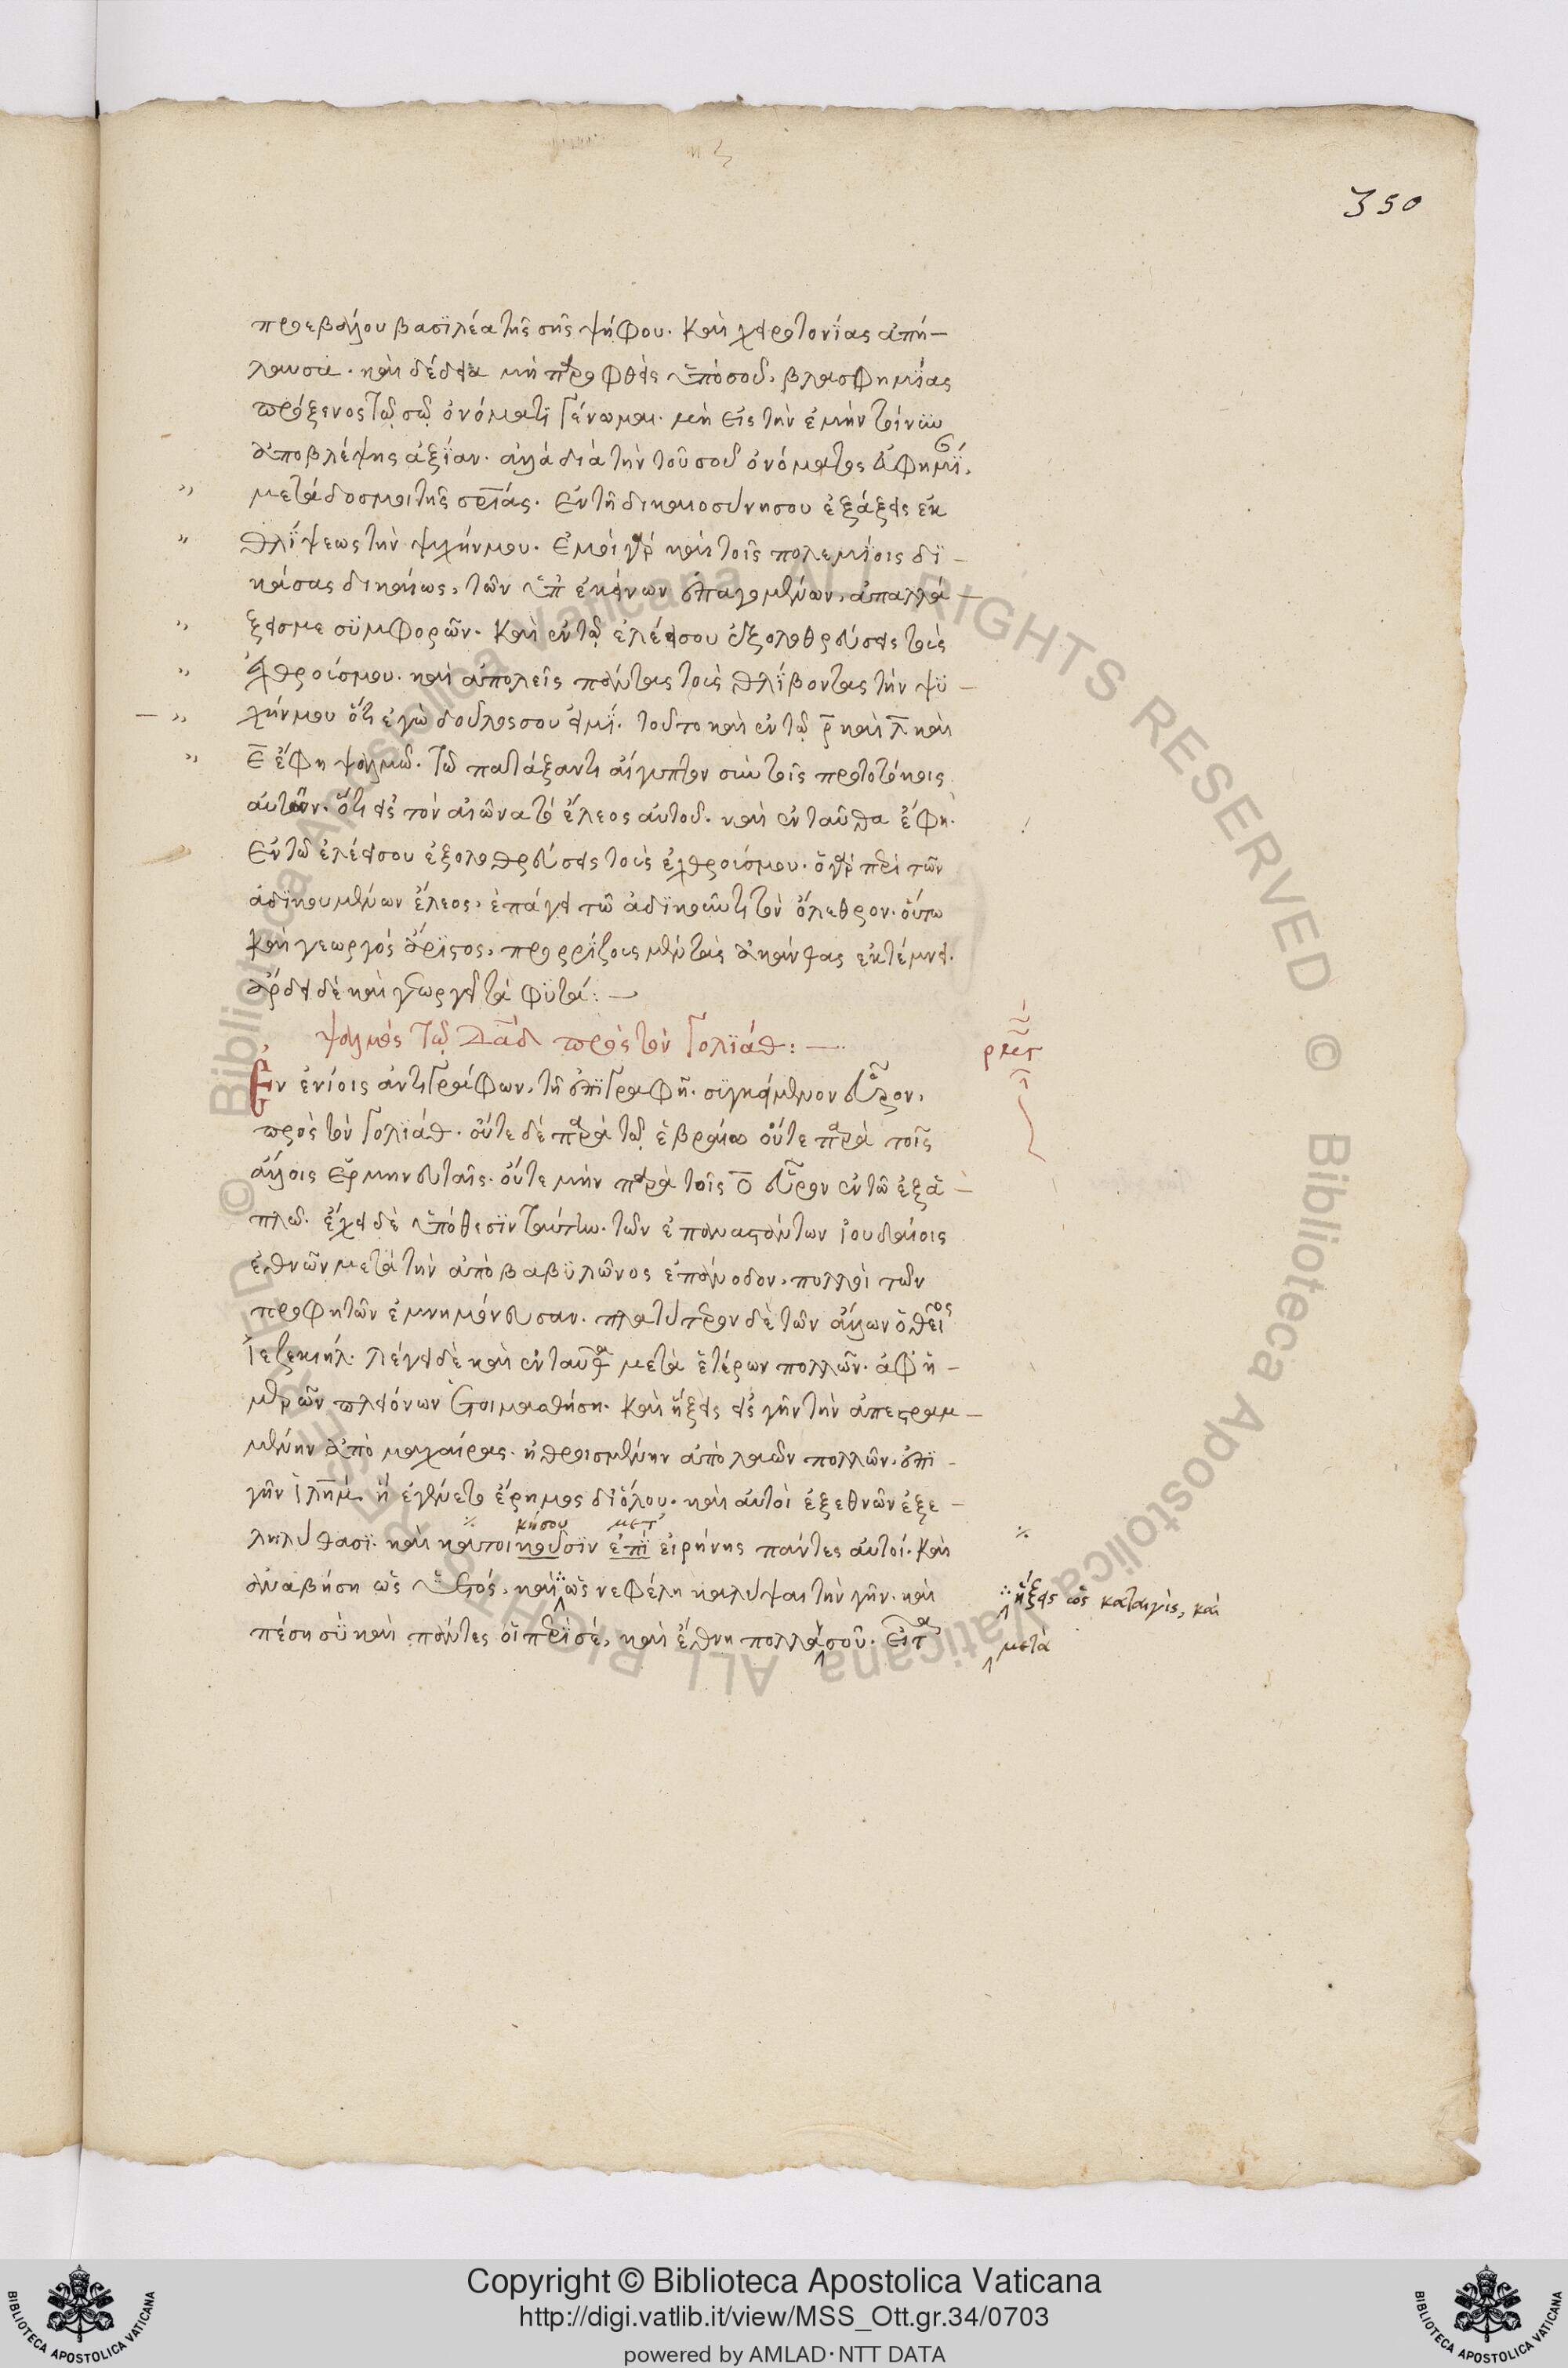 350
προεβάλου βασϊλέα τῆς σῆς ψήφου. Καὶ χειροτονίας ἀπή-
λαυσα. καὶ δέδεια μὴ παροφθεὶς ὑπὸ σοῦ, βλασφημίας
πρόξενος τῷ σῷ ὀνόματι γένωμαι. μὴ εἰς τὴν ἐμὴν τοίνυν
ἀποβλέψης ἀξίαν. ἀλλὰ διὰ τὴν τοῦ σοῦ ὀνόματος εὐφημί,
μετάδος μοι τῆς σρίας. Ἐν τῇ δικαιοσύνη σου ἐξάξεις ἐκ
θλίψεως τὴν ψυχήν μου. Ἐμοὶ γὰρ καὶ τοῖς πολεμίοις δϊ-
κάσας δικαίως, τῶν ὑπ' ἐκείνων ἐπαγομένων, ἀπαλλά-
ξεις με συμφορῶν. Καὶ ἐν τῷ ἐλέει σου ἐξολοθρεύσεις τοὺς
ἐχθρούς μου. καὶ ἀπολεῖς πάντας τοὺς θλίβοντας τὴν ψυ-
χήν μου ὅτι ἐγὼ δοῦλος σου εἰμί. τοῦτο καὶ ἐν τῷ ρ καὶ λ καὶ
ε ἔφη ψαλμῷ. Τῷ πατάξαντι αἴγυπτον σὺν τοῖς πρωτοτόκοις
αὐτῶν. ὅτι εἰς τὸν αἰῶνα τὸ ἔλεος αὐτοῦ. καὶ ἐνταῦθα ἔφη.
Ἐν τῷ ἐλέει σου ἐξολοθρεύσεις τοὺς ἐχθρούς μου. ὁ γὰρ περὶ τῶν
ἀδικουμένων ἔλεος, ἐπάγει τῶ ἀδικοῦντι τὸν ὄλεθρον. οὕτω
καὶ γεωργὸς ἄριστος, προρρίζους μὲν τὰς ἀκάνθας ἐκτέμνει.
ἄρδει δὲ καὶ γεωργεῖ τὰ φυτά: —
ψαλμὸς τῷ Δαδ πρὸς τὸν Γολιάθ: —
Ἐν ἐνίοις ἀντιγράφων, τῇ ἐπιγραφῇ. συγκείμενον εὗρον,
πρὸς τὸν Γολιάθ. οὔτε δὲ παρὰ τῷ ἑβραίω οὔτε παρὰ τοῖς
ἄλλοις ἑρμηνευταῖς. οὔτε μὴν παρὰ τοῖς ο εὗρον ἐν τῶ ἑξα-
πλῷ. ἔχει δὲ ὑπόθεσιν ταύτην. τῶν ἐπαναστάντων ἰουδαίοις
ἐθνῶν μετὰ τὴν ἀπὸ βαβυλῶνος ἐπάνοδον, πολλοὶ τῶν
προφητῶν ἐμνημόνευσαν. πλατύτερον δὲ τῶν ἄλλων ὁ θεῖος
Ἰεζεκιήλ. λέγει δὲ καὶ ἐνταῦθα μετὰ ἑτέρων πολλῶν. ἀφ' ἡ-
μερῶν πλειόνων ἑτοιμασθήση. Καὶ ἥξεις εἰς γῆν τὴν ἀπεστραμ-
μένην ἀπὸ μαχαίρας. ἠθροισμένην ἀπὸ λαῶν πολλῶν. ἐπὶ
γῆν Ἰλημ. ἣ ἐγένετο ἔρημος δι' ὅλου. καὶ αὐτοὶ ἐξ ἐθνῶν ἐξε-
κήσου μετ'
ληλύθασι. καὶ κατοικοῦσϊν ἐπὶ εἰρήνης πάντες αὐτοί. Καὶ
ἀναβήση ὡς ὑετός, καὶ ὡς νεφέλη καλύψαι τὴν γῆν. καὶ
ἥξεις ὡς καταιγὶς, καὶ
πέση σὺ καὶ πάντες οἱ περὶ σέ, καὶ ἔθνη πολλὰ σοῦ. εἶτα
μετὰ
Copyright © Biblioteca Apostolica Vaticana
http://digi.vatlib.it/view/MSS_Ott.gr.34/0703
powered by AMLAD·NTT DATA
BIBLIOTECA APOSTOLICA VATICANA
BIBLIOTECA APOSTOLICA VATICANA
© Biblioteca Apostolica Vaticana ALL RIGHTS RESERVED